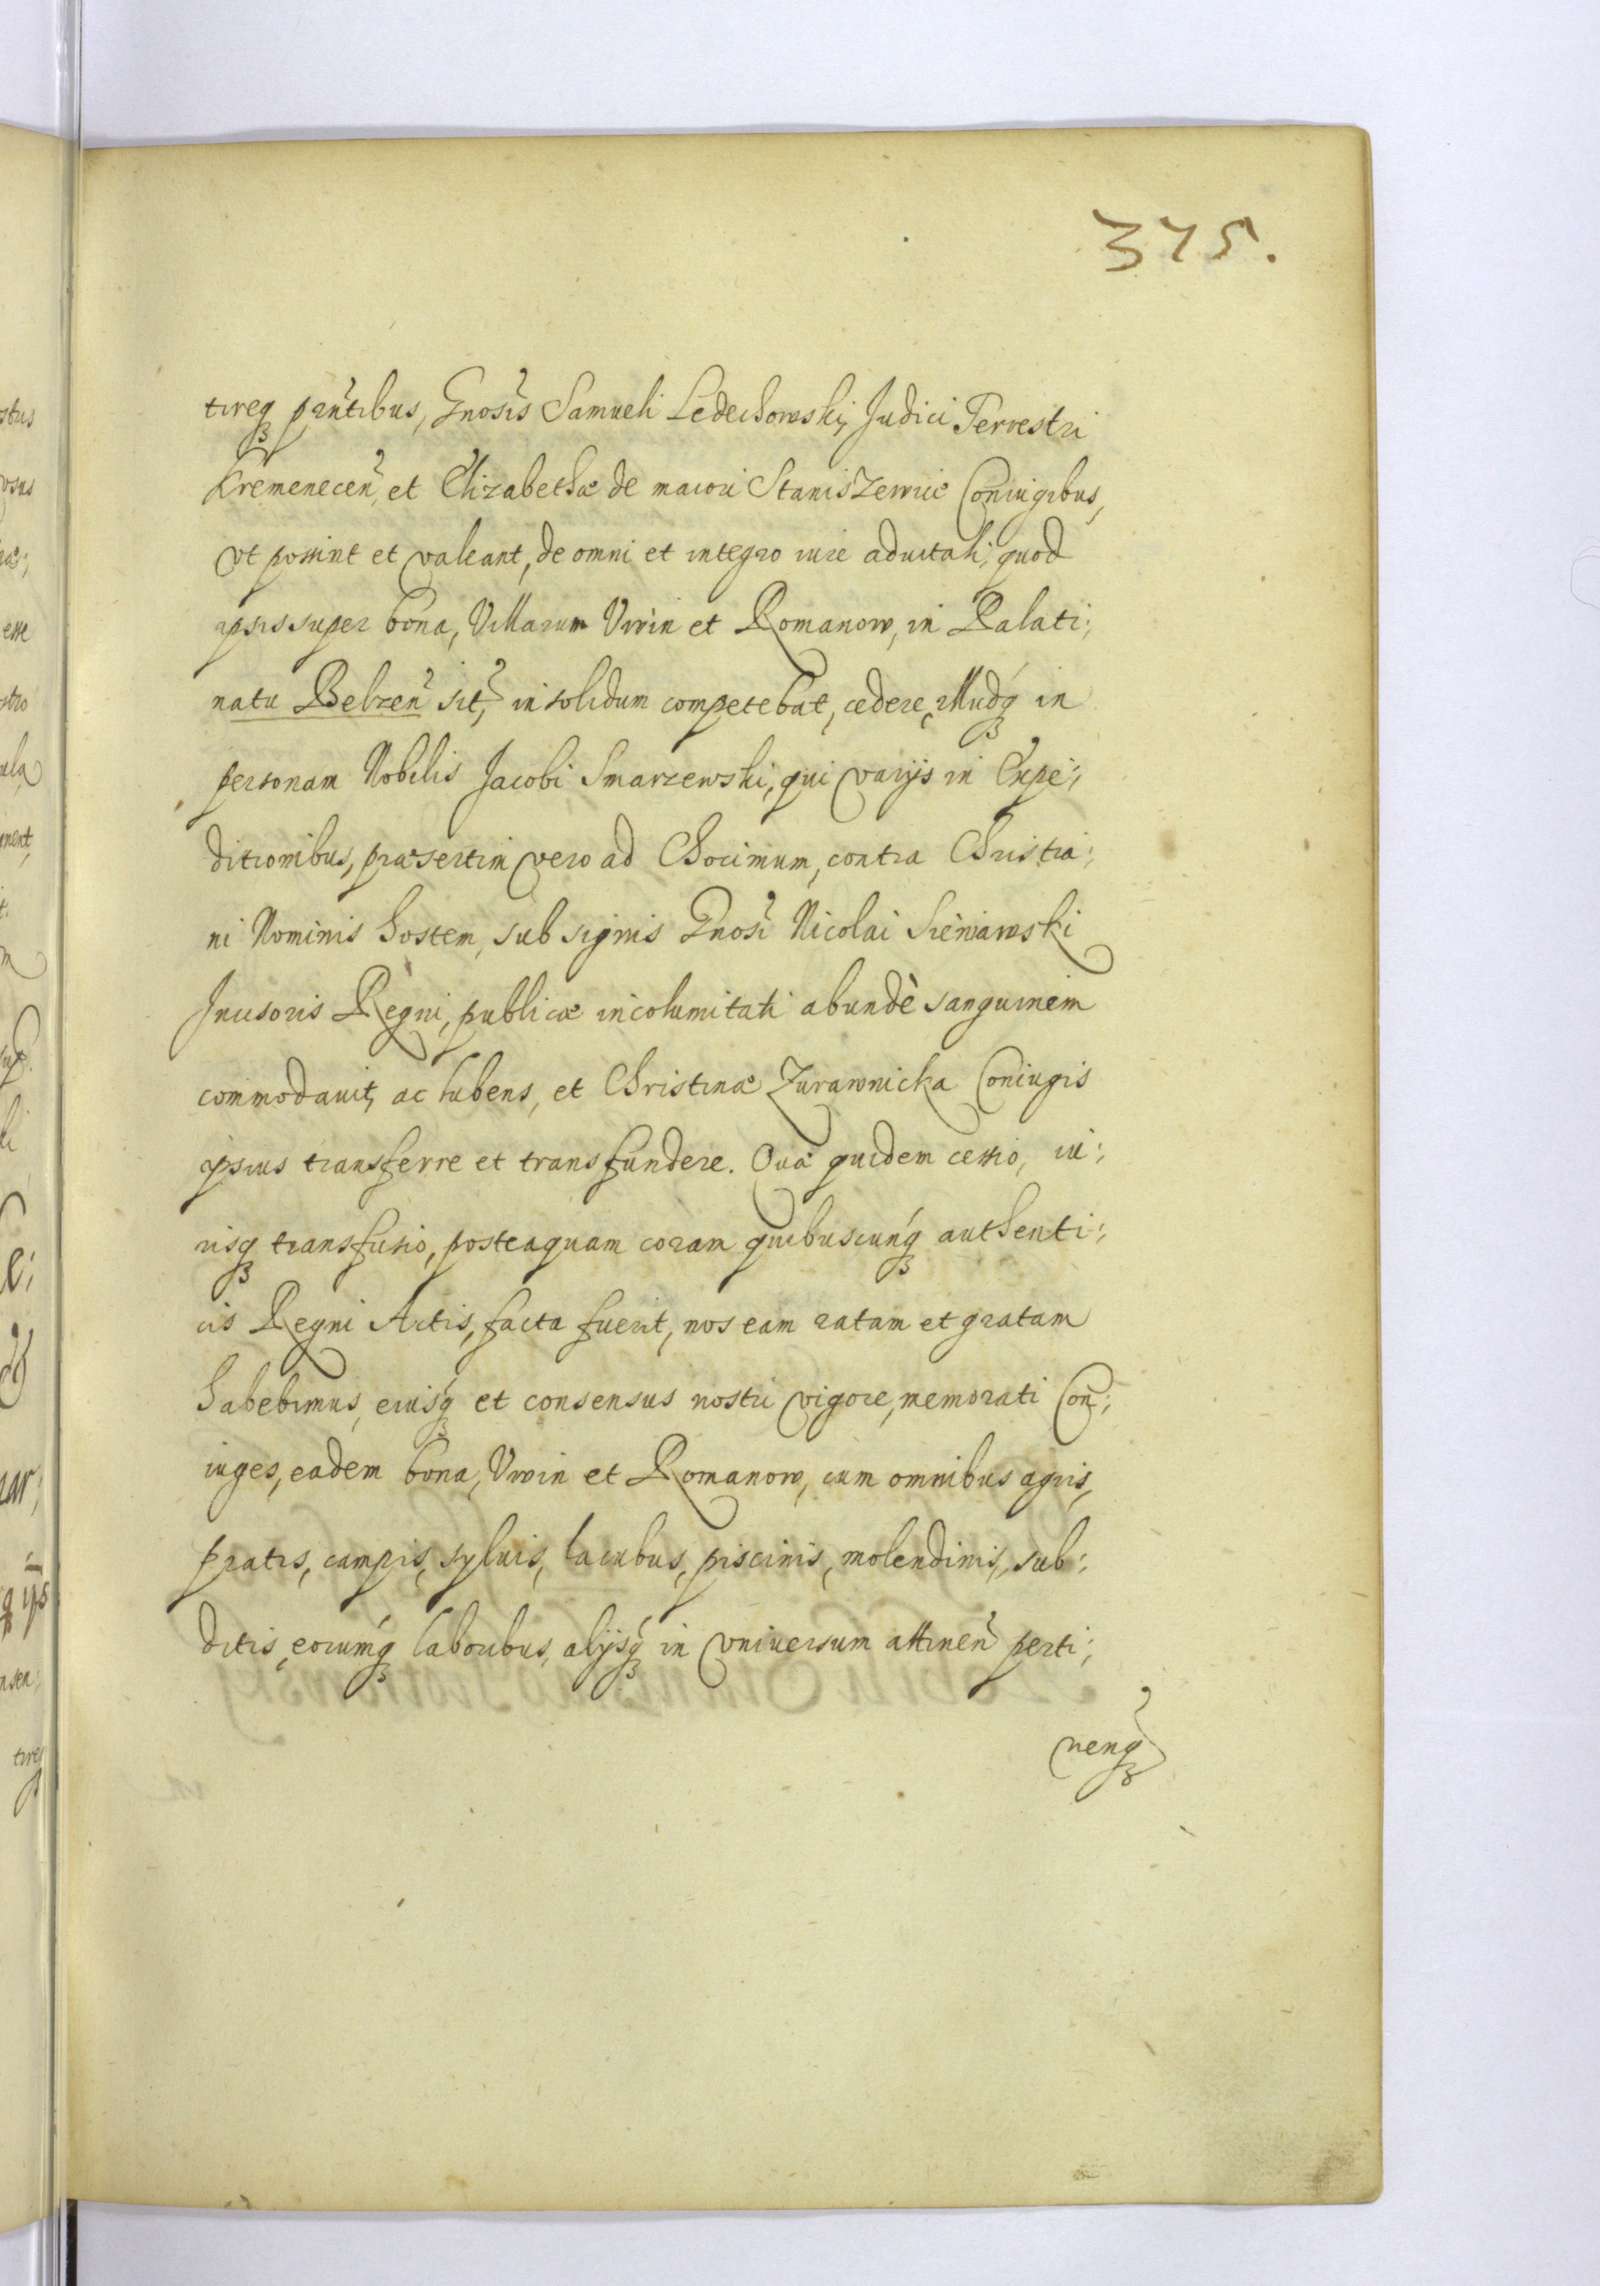 375.
tireq₃ pntibus, Gnosis Samueli Ledechowski, Judici Terrestri
Kremenecen, et Elizabethæ de maiori Staniszewic Coniugibus,
vt possint et valeant, de omni et integro iure aduitali, quod
ipsis super bona, Villarum Vwin et Romanow, in Palati:
natu Belzen sit, in solidum competebat, cedere, illudq₃ in
personam Nobilis Jacobi Smarzewski, qui varijs in Expe:
ditionibus, præsertim vero ad Chocimum, contra Christia:
ni Nominis hostem, sub signis Gnosi Nicolai Sieniawski
Incisoris Regni, publicæ incolumitati abundè sanguinem
commodauit, ac lubens, et Christinæ Zurawnicka Coniugis
ipsius transferre et transfundere. Quæ quidem cessio, iu:
risq₃ transfusio, posteaquam coram quibuscunq₃ authenti:
cis Regni Actis, facta fuerit, nos eam ratam et gratam
habebimus, eiusq₃ et consensus nostri vigore, memorati Con:
iuges, eadem bona, Vwin et Romanow, cum omnibus agris,
pratis, campis, syluis, lacubus, piscinis, molendinis, sub:
ditis, eorumq₃ laboribus, alijsq₃ in vniuersum attinen perti:
nenq₃